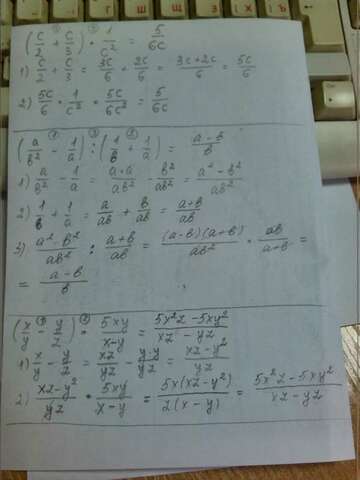 (c/2 + c/3) · 1/c² = 5/6c
1) c/2 + c/3 = 3c/6 + 2c/6 = 3c+2c/6 = 5c/6
2) 5c/6 · 1/c² = 5c/6c² = 5/6c
(a/b² - 1/a) : (1/b + 1/a) = a-b/b
1) a/b² - 1/a = a·a/ab² - b²/ab² = a²-b²/ab²
2) 1/b + 1/a = a/ab + b/ab = a+b/ab
3) a²-b²/ab² : a+b/ab = (a-b)(a+b)/ab² · ab/a+b =
= a-b/b
(x/y - y/z) · 5xy/x-y = 5x²z-5xy²/xz-yz
1) x/y - y/z = xz/yz - y·y/yz = xz-y²/yz
2) xz-y²/yz · 5xy/x-y = 5x(xz-y²)/z(x-y) = 5x²z-5xy²/xz-yz